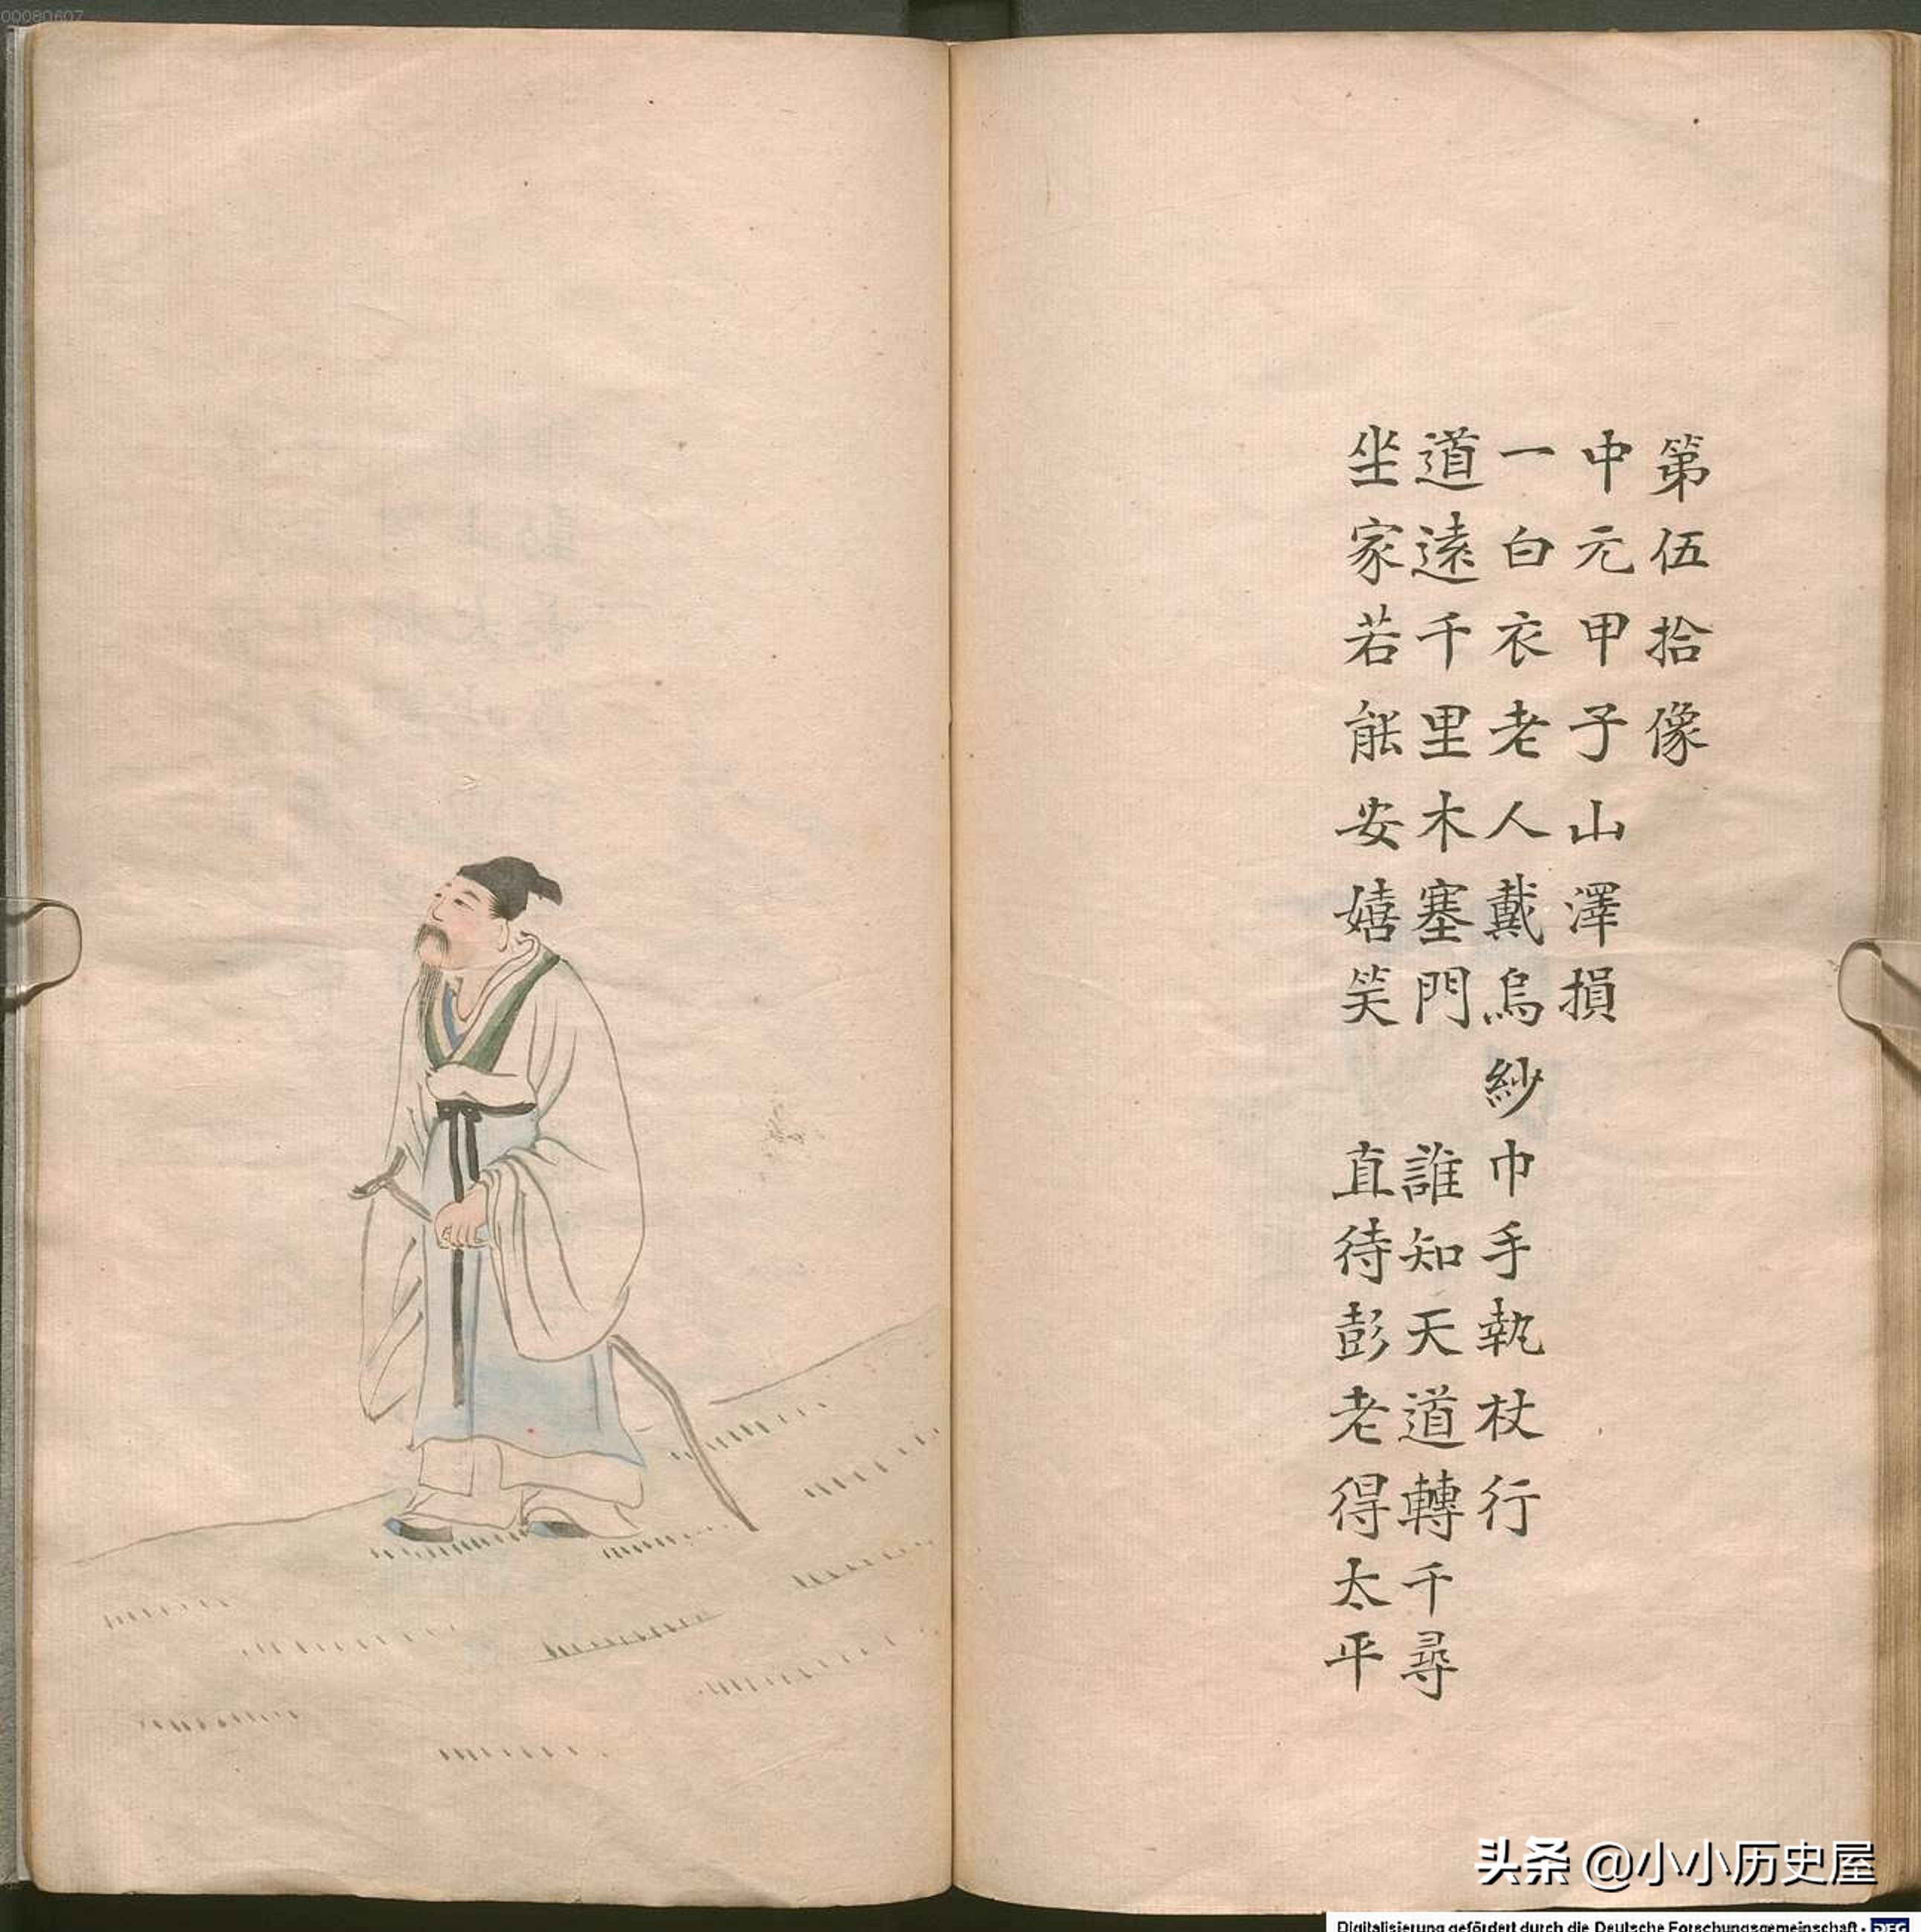 00080607
第伍拾像
中元甲子山澤損
一白衣老人戴烏紗巾手執杖行
道遠千里木塞門 誰知天道轉千尋
坐家若能安嬉笑 直待彭老得太平
头条 @小小历史屋
Digitalisierung gefördert durch die Deutsche Forschungsgemeinschaft - DFG